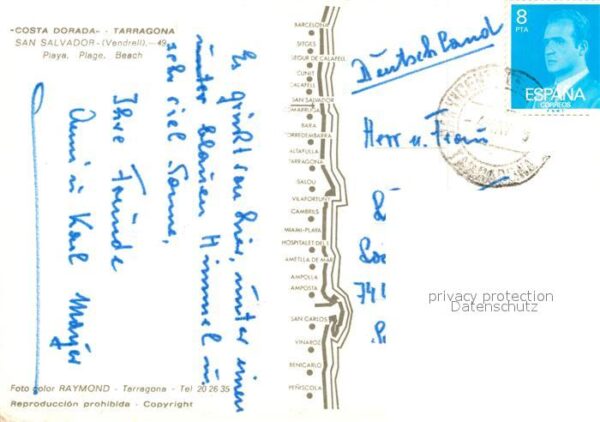 "COSTA DORADA" - TARRAGONA
SAN SALVADOR - (Vendrell). - 49
Playa, Plage, Beach
Es grüßt von hier, unter einem
unter blauen Himmel u.
sehr viel Sonne,
Ihre Freunde
Anni u Karl Mayer
Foto color RAYMOND - Tarragona - Tel 20 26 35
Reproducción prohibida - Copyright
BARCELONA
SITGES
SEGUR DE CALAFELL
CUNIT
CALAFELL
SAN SALVADOR
COMARRUGA
BARA
TORREDEMBARRA
ALTAFULLA
TARRAGONA
SALOU
VILAFORTUNY
CAMBRILS
MIAMI-PLAYA
HOSPITALET DEL I.
AMETLLA DE MAR
AMPOLLA
AMPOSTA
SAN CARLOS
VINAROZ
BENICARLO
PEÑISCOLA
Deutschland
8
PTA
ESPAÑA
CORREOS
Herr u. Frau
741
privacy protection
Datenschutz